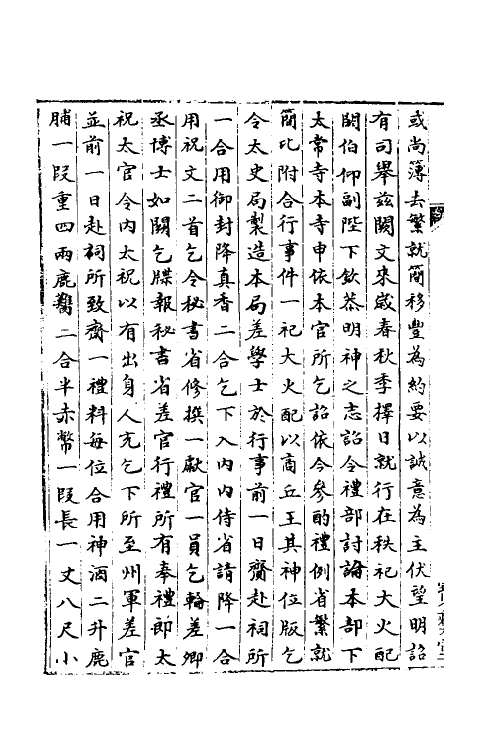 或尚薄去繁就簡移豐為約要以誠意為主伏望明詔
有司舉茲闕文來歲春秋季擇日就行在秩祀大火配
閼伯仰副陛下欽恭明神之志詔令禮部討論本部下
太常寺本寺申依本官所乞詔依今參酌禮例省繁就
簡比附合行事件一祀大火配以商丘王其神位版乞
令太史局製造本局差學士於行事前一日齎赴祠所
一合用御封降真香二合乞下入內內侍省請降一合
用祝文二首乞令秘書省修撰一獻官一員乞輪差卿
丞博士如闕乞牒報秘書省差官行禮所有奉禮郎太
祝太官令內太祝以有出身人充乞下所至州軍差官
並前一日赴祠所致齋一禮料每位合用神酒二升鹿
脯一段重四兩鹿臡二合半赤幣一段長一丈八尺小